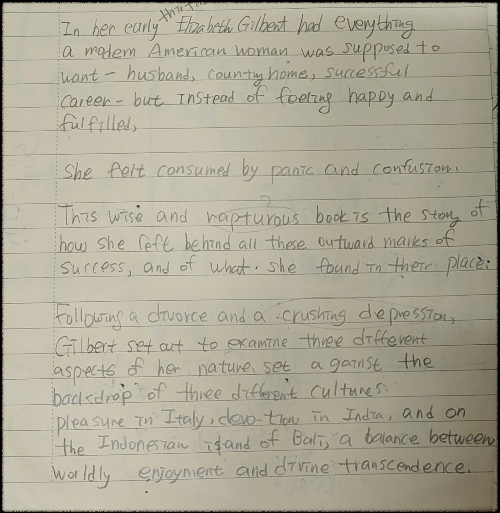 In her early thirties Elizabeth Gilbert had everything
a modern American woman was supposed to
want - husband, country home, successful
career - but instead of feeling happy and
fulfilled,
She felt consumed by panic and confusion.
This wise and rapturous book is the story of
how she left behind all these outward marks of
success, and of what she found in their place:
Following a divorce and a crushing depression,
Gilbert set out to examine three different
aspects of her nature, set against the
backdrop of three different cultures:
pleasure in Italy, devotion in India, and on
the Indonesian island of Bali, a balance between
worldly enjoyment and divine transcendence.